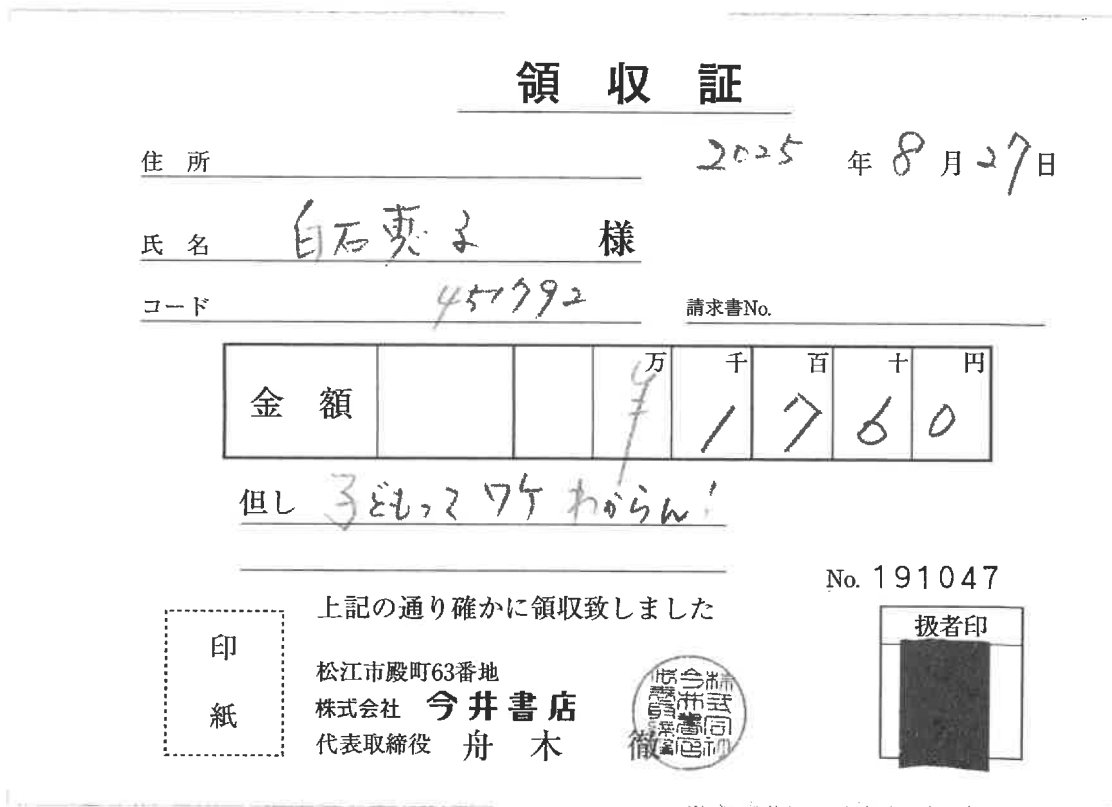 領収証
住所
2025年8月27日
氏名 白石恵子 様
コード 451792
請求書No.
金額 万千百十円
¥1760
但し 子どもってワケわからん!
No. 191047
上記の通り確かに領収致しました
扱者印
印紙
松江市殿町63番地
株式会社 今井書店
代表取締役 舟木 徹